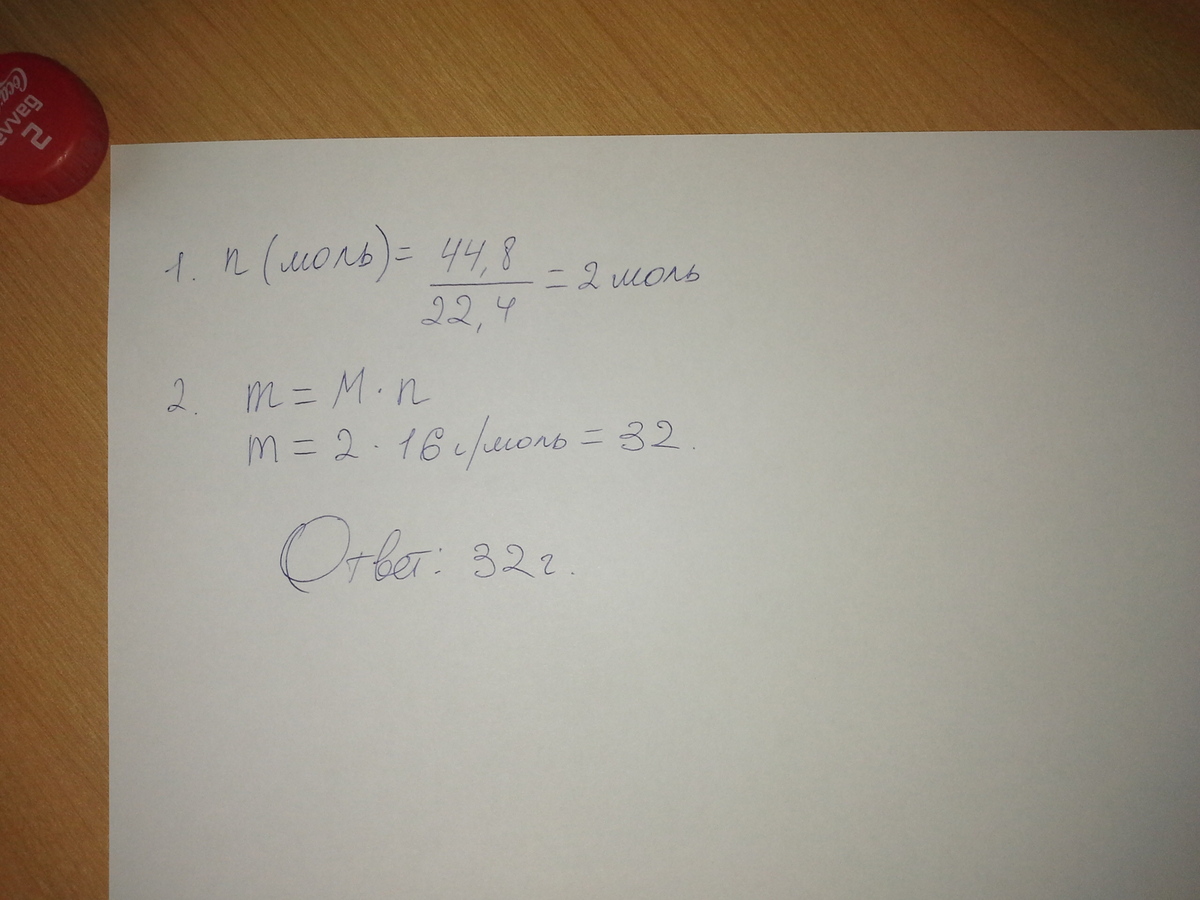 Coca
2
балла
1. n (моль) = 44,8 / 22,4 = 2 моль
2. m = M · n
m = 2 · 16 г/моль = 32.
Ответ: 32 г.